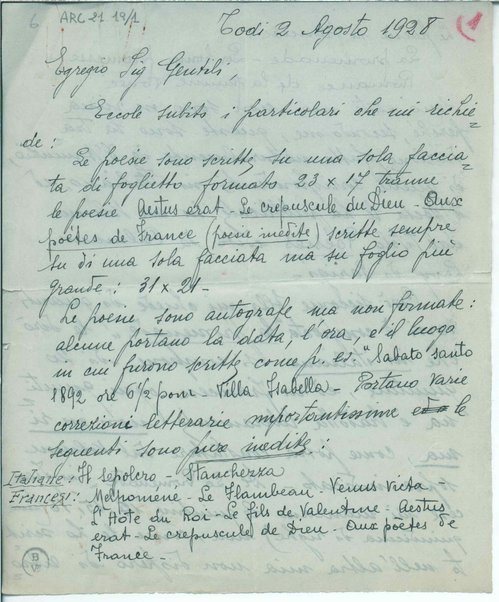 6 ARC 21 19/1
1
Todi 2 Agosto 1928
Egregio Sig Gentili,
Eccole subito i particolari che mi richie-
de:
Le poesie sono scritte su una sola faccia-
ta di foglietto formato 23 x 17 tranne
le poesie Aestus erat - Le crepuscule du Dieu - Aux
poètes de France (poesie inedite) scritte sempre
su di una sola facciata ma su foglio più
grande: 31 x 21 -
Le poesie sono autografe ma non formate:
alcune portano la data, l'ora, e il luogo
in cui furono scritte come p. es. "Sabato santo
1892 ore 6 1/2 pom - Villa Isabella - Portano varie
correzioni letterarie importantissime e le
seguenti sono pure inedite:
Italiane: Il sepolcro - Stanchezza
Francesi: Melpomene - Le Flambeau - Venus Victa -
L'Hôte du Roi - Le fils de Valentine - Aestus
erat - Le crepuscule de Dieu - Aux poètes de
France -
B